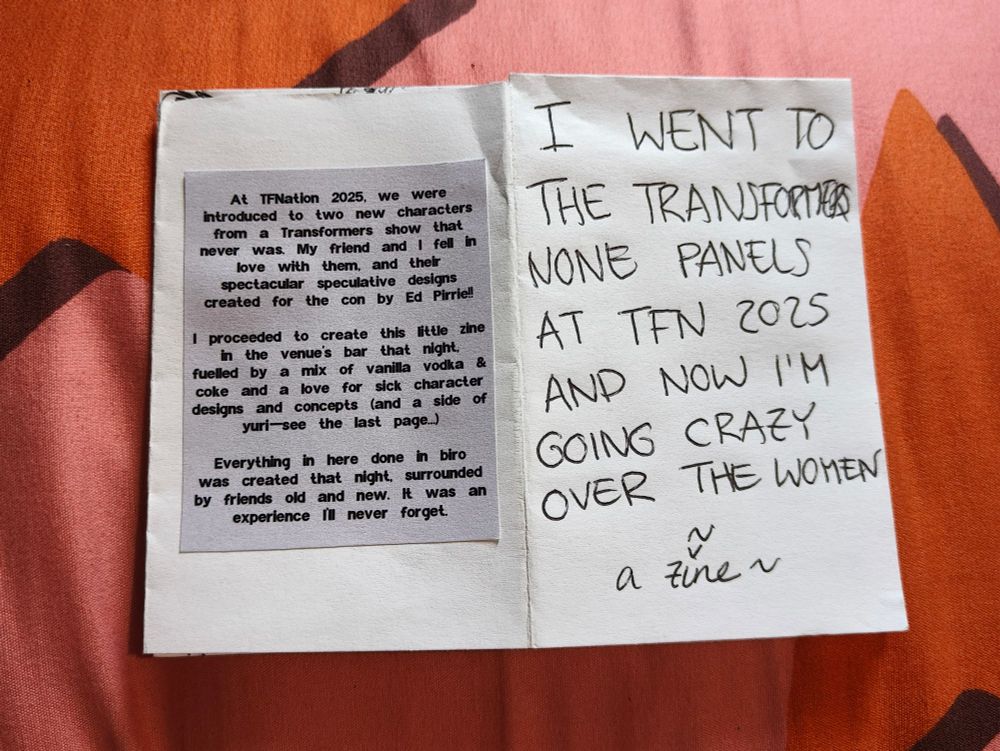 At TFNation 2025, we were
introduced to two new characters
from a Transformers show that
never was. My friend and I fell in
love with them, and their
spectacular speculative designs
created for the con by Ed Pirrie!!
I proceeded to create this little zine
in the venue's bar that night,
fuelled by a mix of vanilla vodka &
coke and a love for sick character
designs and concepts (and a side of
yuri—see the last page...)
Everything in here done in biro
was created that night, surrounded
by friends old and new. It was an
experience I'll never forget.
I WENT TO
THE TRANSFORMERS
NONE PANELS
AT TFN 2025
AND NOW I'M
GOING CRAZY
OVER THE WOMEN
~
a zine ~